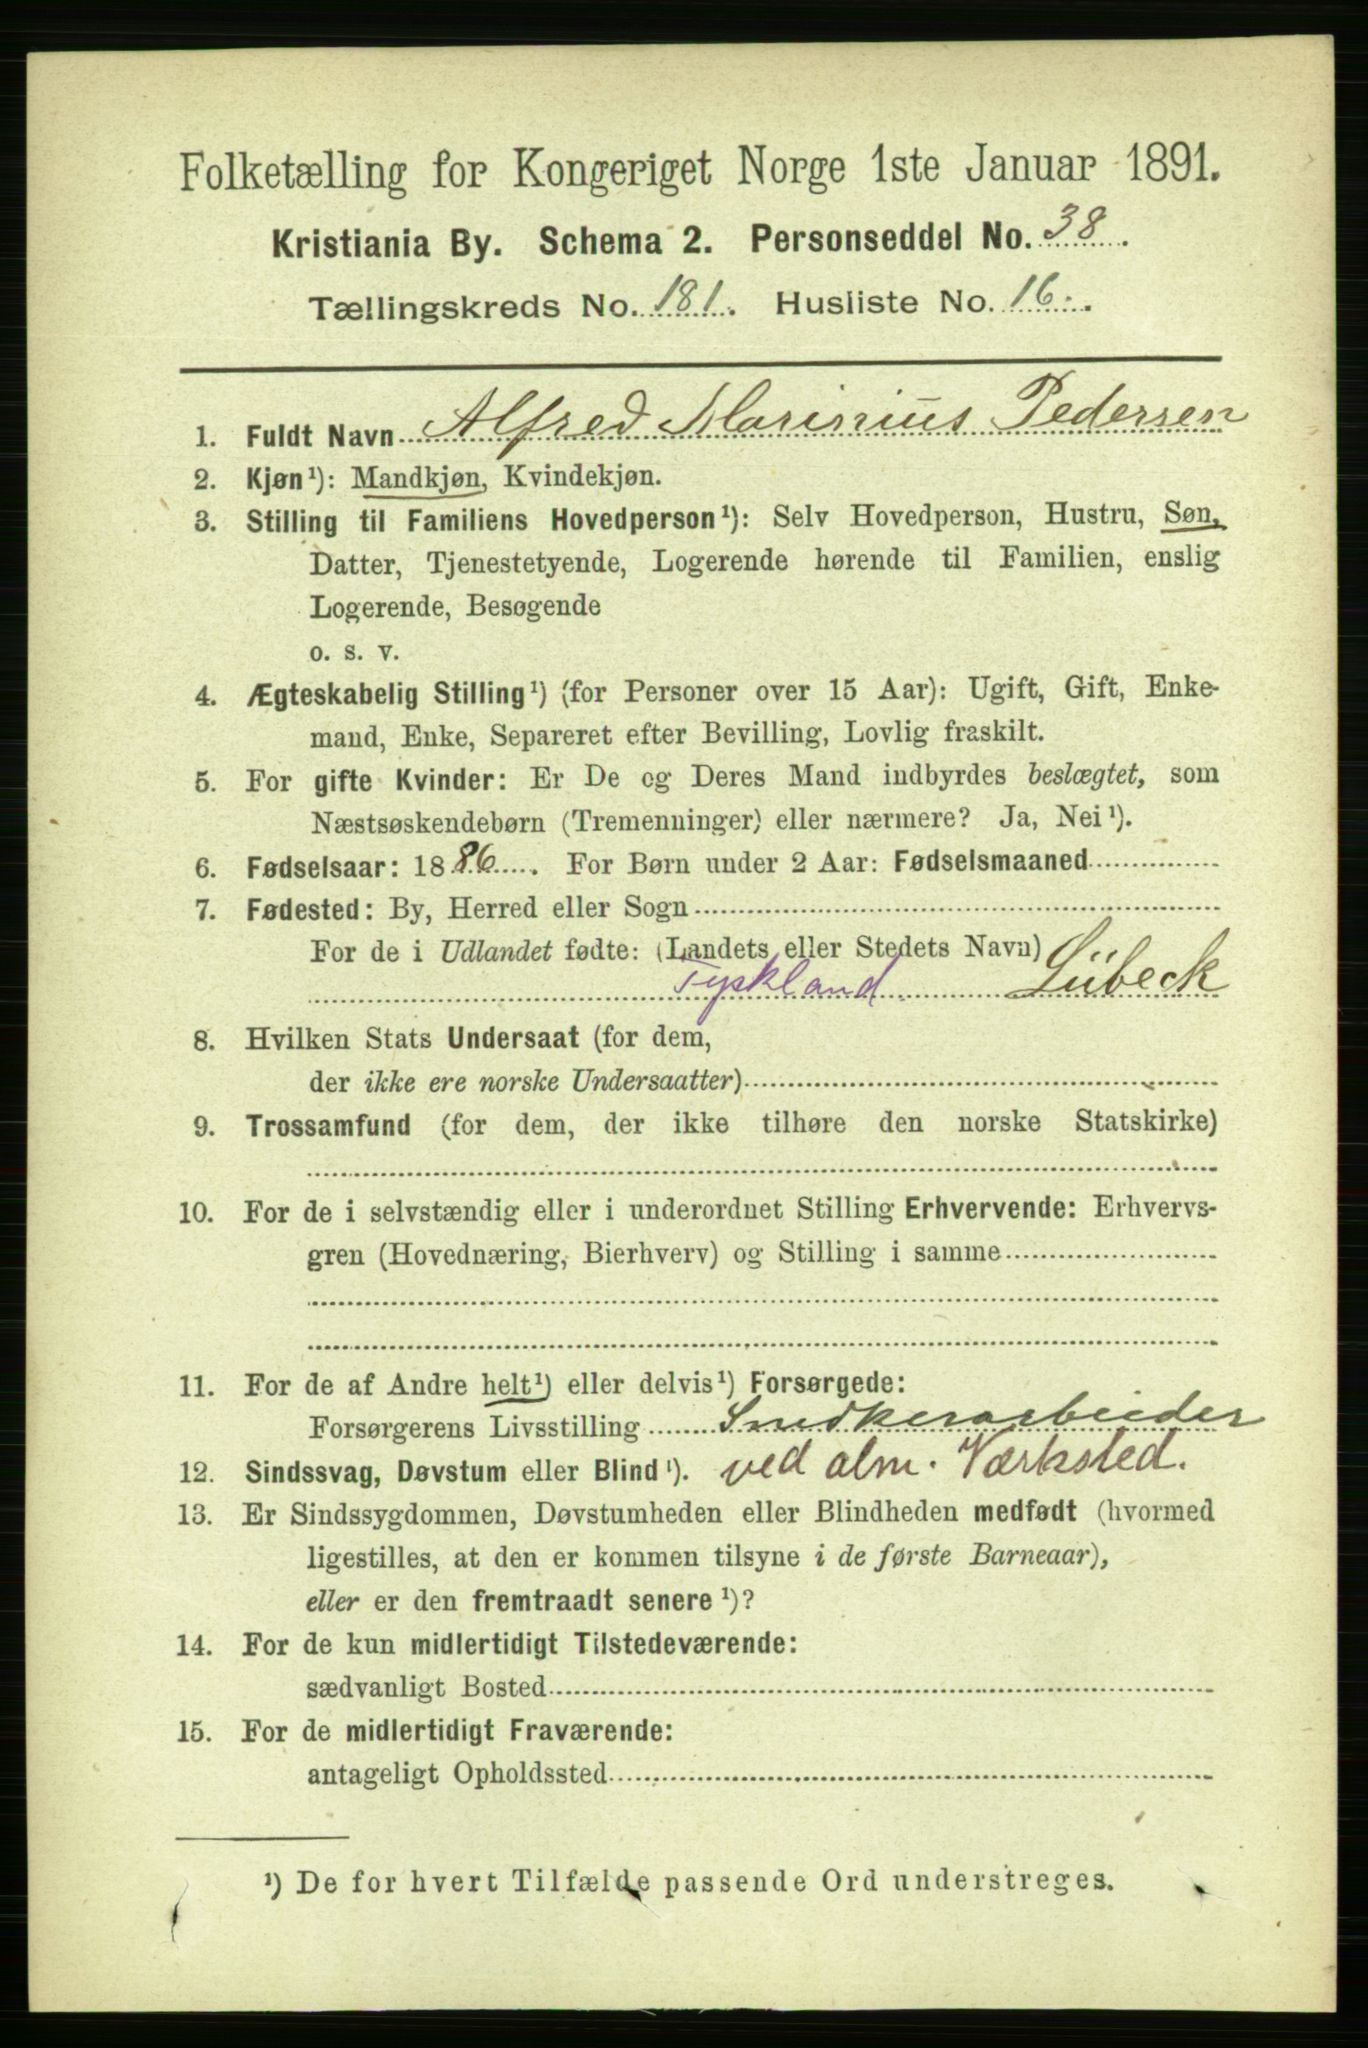 Folketælling for Kongeriget Norge 1ste Januar 1891.
Kristiania By. Schema 2. Personseddel No. 38.
Tællingskreds No. 181. Husliste No. 16.
1. Fuldt Navn Alfred Marinius Pedersen
2. Kjøn¹): Mandkjøn, Kvindekjøn.
3. Stilling til Familiens Hovedperson¹): Selv Hovedperson, Hustru, Søn,
Datter, Tjenestetyende, Logerende hørende til Familien, enslig
Logerende, Besøgende
o. s. v.
4. Ægteskabelig Stilling¹) (for Personer over 15 Aar): Ugift, Gift, Enke-
mand, Enke, Separeret efter Bevilling, Lovlig fraskilt.
5. For gifte Kvinder: Er De og Deres Mand indbyrdes beslægtet, som
Næstsøskendebørn (Tremenninger) eller nærmere? Ja, Nei¹).
6. Fødselsaar: 1886. For Børn under 2 Aar: Fødselsmaaned
7. Fødested: By, Herred eller Sogn
For de i Udlandet fødte: (Landets eller Stedets Navn)
Tyskland. Lübeck
8. Hvilken Stats Undersaat (for dem,
der ikke ere norske Undersaatter)
9. Trossamfund (for dem, der ikke tilhøre den norske Statskirke)
10. For de i selvstændig eller i underordnet Stilling Erhvervende: Erhvervs-
gren (Hovednæring, Bierhverv) og Stilling i samme
11. For de af Andre helt¹) eller delvis¹) Forsørgede:
Forsørgerens Livsstilling Snedkerarbeider
12. Sindssvag, Døvstum eller Blind¹). ved alm. Værksted.
13. Er Sindssygdommen, Døvstumheden eller Blindheden medfødt (hvormed
ligestilles, at den er kommen tilsyne i de første Barneaar),
eller er den fremtraadt senere¹)?
14. For de kun midlertidigt Tilstedeværende:
sædvanligt Bosted
15. For de midlertidigt Fraværende:
antageligt Opholdssted
¹) De for hvert Tilfælde passende Ord understreges.